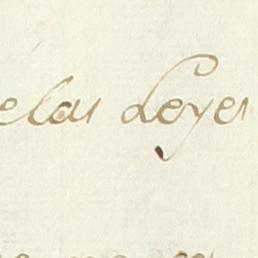 elas Leyes